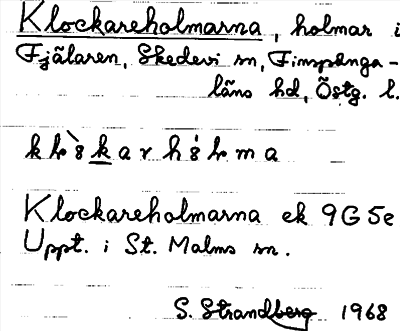 Klockareholmarna, holmar i
Fjälaren, Skedevi sn, Finspånga-
läns hd, Östg. l.
Klockareholmarna ek 9G 5e
Uppt. i St. Malms sn.
S. Strandberg 1968